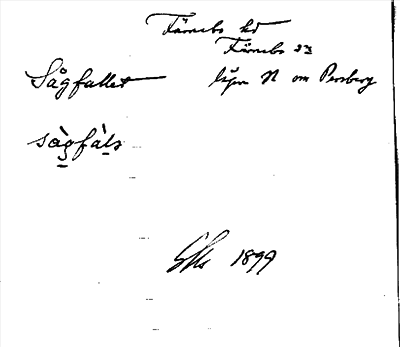 Färnebo hd
Färnebo sn
Sågfallet lägen N om Persberg
sàgfàls
1899